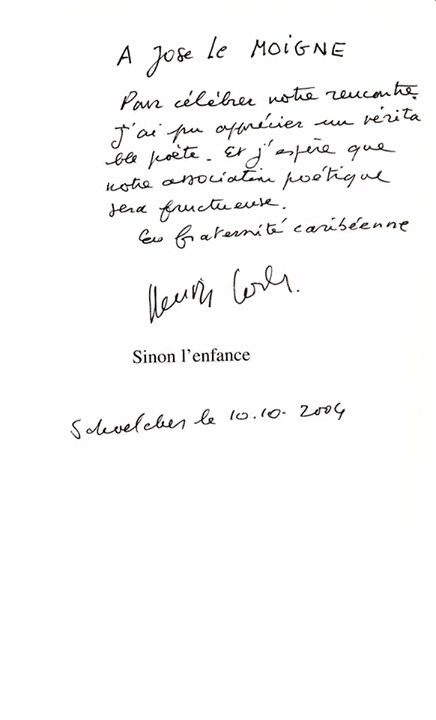 A Jose Le MOIGNE
Pour célébrer notre rencontre.
J'ai pu apprécier un vérita
ble poète. Et j'espère que
notre association poétique
sera fructueuse.
En fraternité caribéenne
Henri Corbin.
Sinon l'enfance
Schoelcher le 10.10.2004